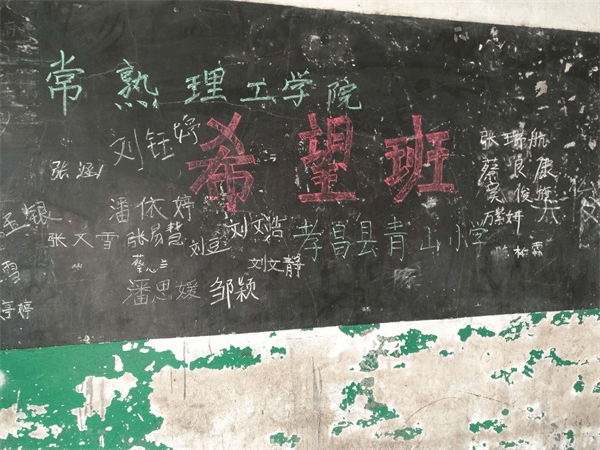 常熟理工学院
希望班
孝昌县青山小学
刘钰婷
张涵
潘依婷
张文雪
张易慧
刘豆
刘文浩
刘文静
蔡心兰
潘思媛
邹颖
雪
婷
张瑞航
蔡良康
俊
妍
陈柏霖